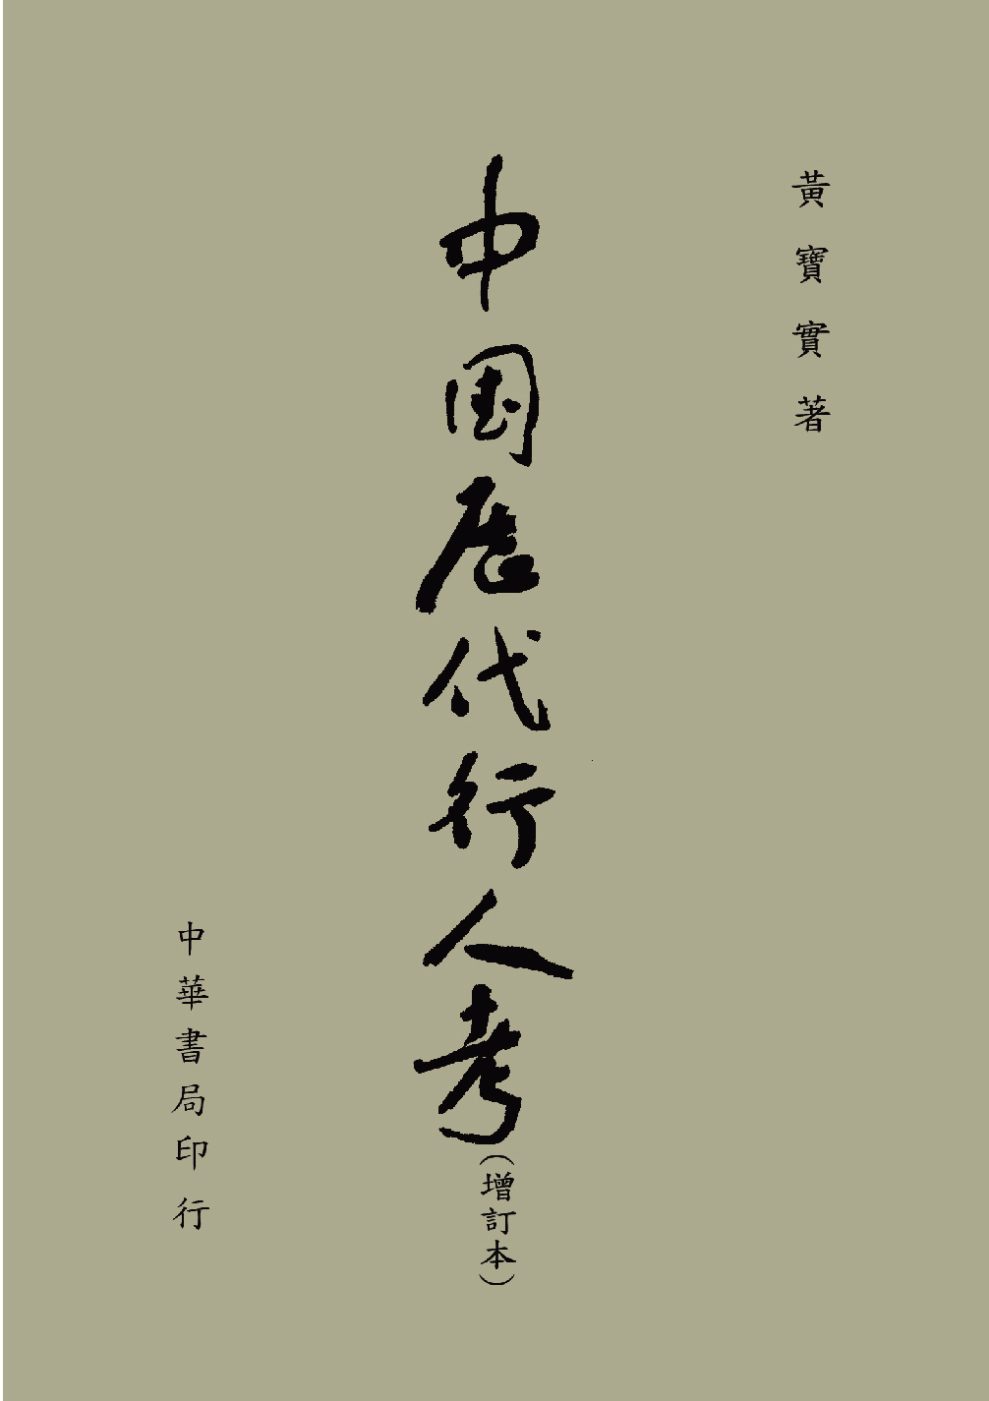 黃寶實著
中国歷代行人考
（增訂本）
中華書局印行